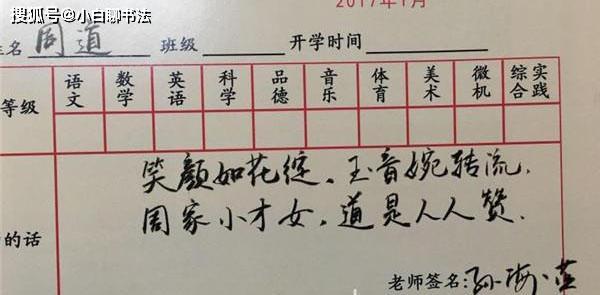 搜狐号@小白聊书法
2017年1月
姓名 周道 班级 开学时间
等级 语文 数学 英语 科学 品德 音乐 体育 美术 微机 综合实践
笑颜如花绽、玉音婉转流.
周家小才女,道是人人赞.
的话
老师签名:孙海